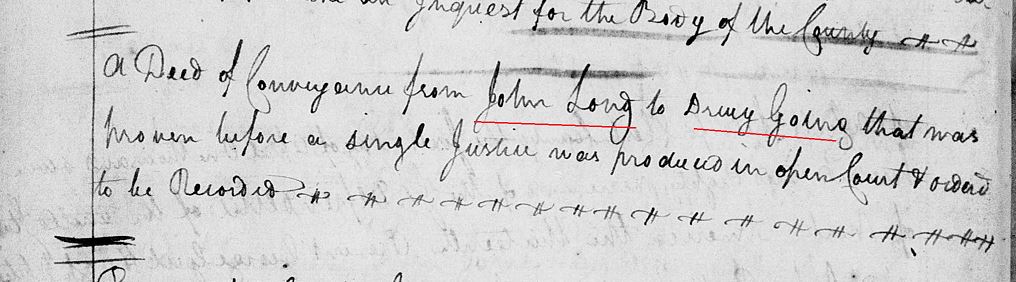 an Inquest for the Body of the County
A Deed of Conveyance from John Long to Drury Going that was
proven before a single Justice was produced in open Court & ordered
to be Recorded